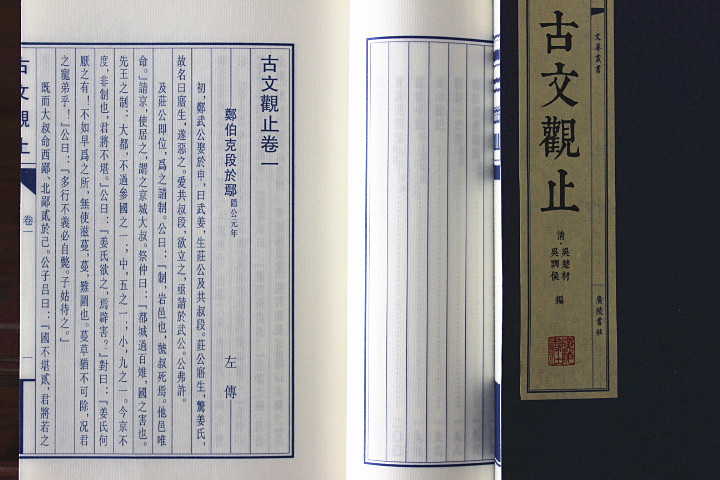 文華叢書
古文觀止
清·吳楚材
吳調侯
編
廣陵書社
古文觀止卷一
鄭伯克段於鄢 隱公元年
左傳
初,鄭武公娶於申,曰武姜,生莊公及共叔段。莊公寤生,驚姜氏,
故名曰寤生,遂惡之。愛共叔段,欲立之,亟請於武公。公弗許。
及莊公即位,爲之請制。公曰:『制,岩邑也,虢叔死焉。他邑唯
命。』請京,使居之,謂之京城大叔。祭仲曰:『都城過百雉,國之害也。
先王之制:大都,不過參國之一;中,五之一;小,九之一。今京不
度,非制也,君將不堪。』公曰:『姜氏欲之,焉辟害?』對曰:『姜氏何
厭之有!不如早爲之所,無使滋蔓,蔓,難圖也。蔓草猶不可除,況君
之寵弟乎!』公曰:『多行不義必自斃。子姑待之。』
既而大叔命西鄙、北鄙貳於己。公子呂曰:『國不堪貳,君將若之
古文觀止
卷一
一